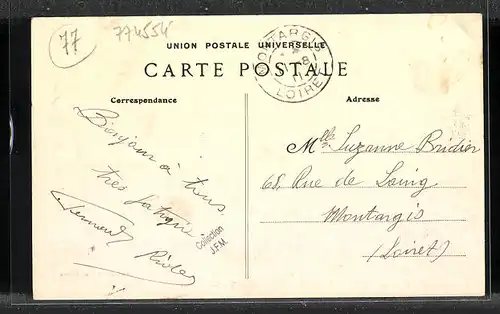 77
774554
UNION POSTALE UNIVERSELLE
MONTARGIS
8
11
LOIRET
CARTE POSTALE
Correspondance
Adresse
Bonjour à tous,
très fatigué
Fernand
Collection
J.F.M.
Mlle Suzanne Bridier
68, Rue de Loing
Montargis
(Loiret)